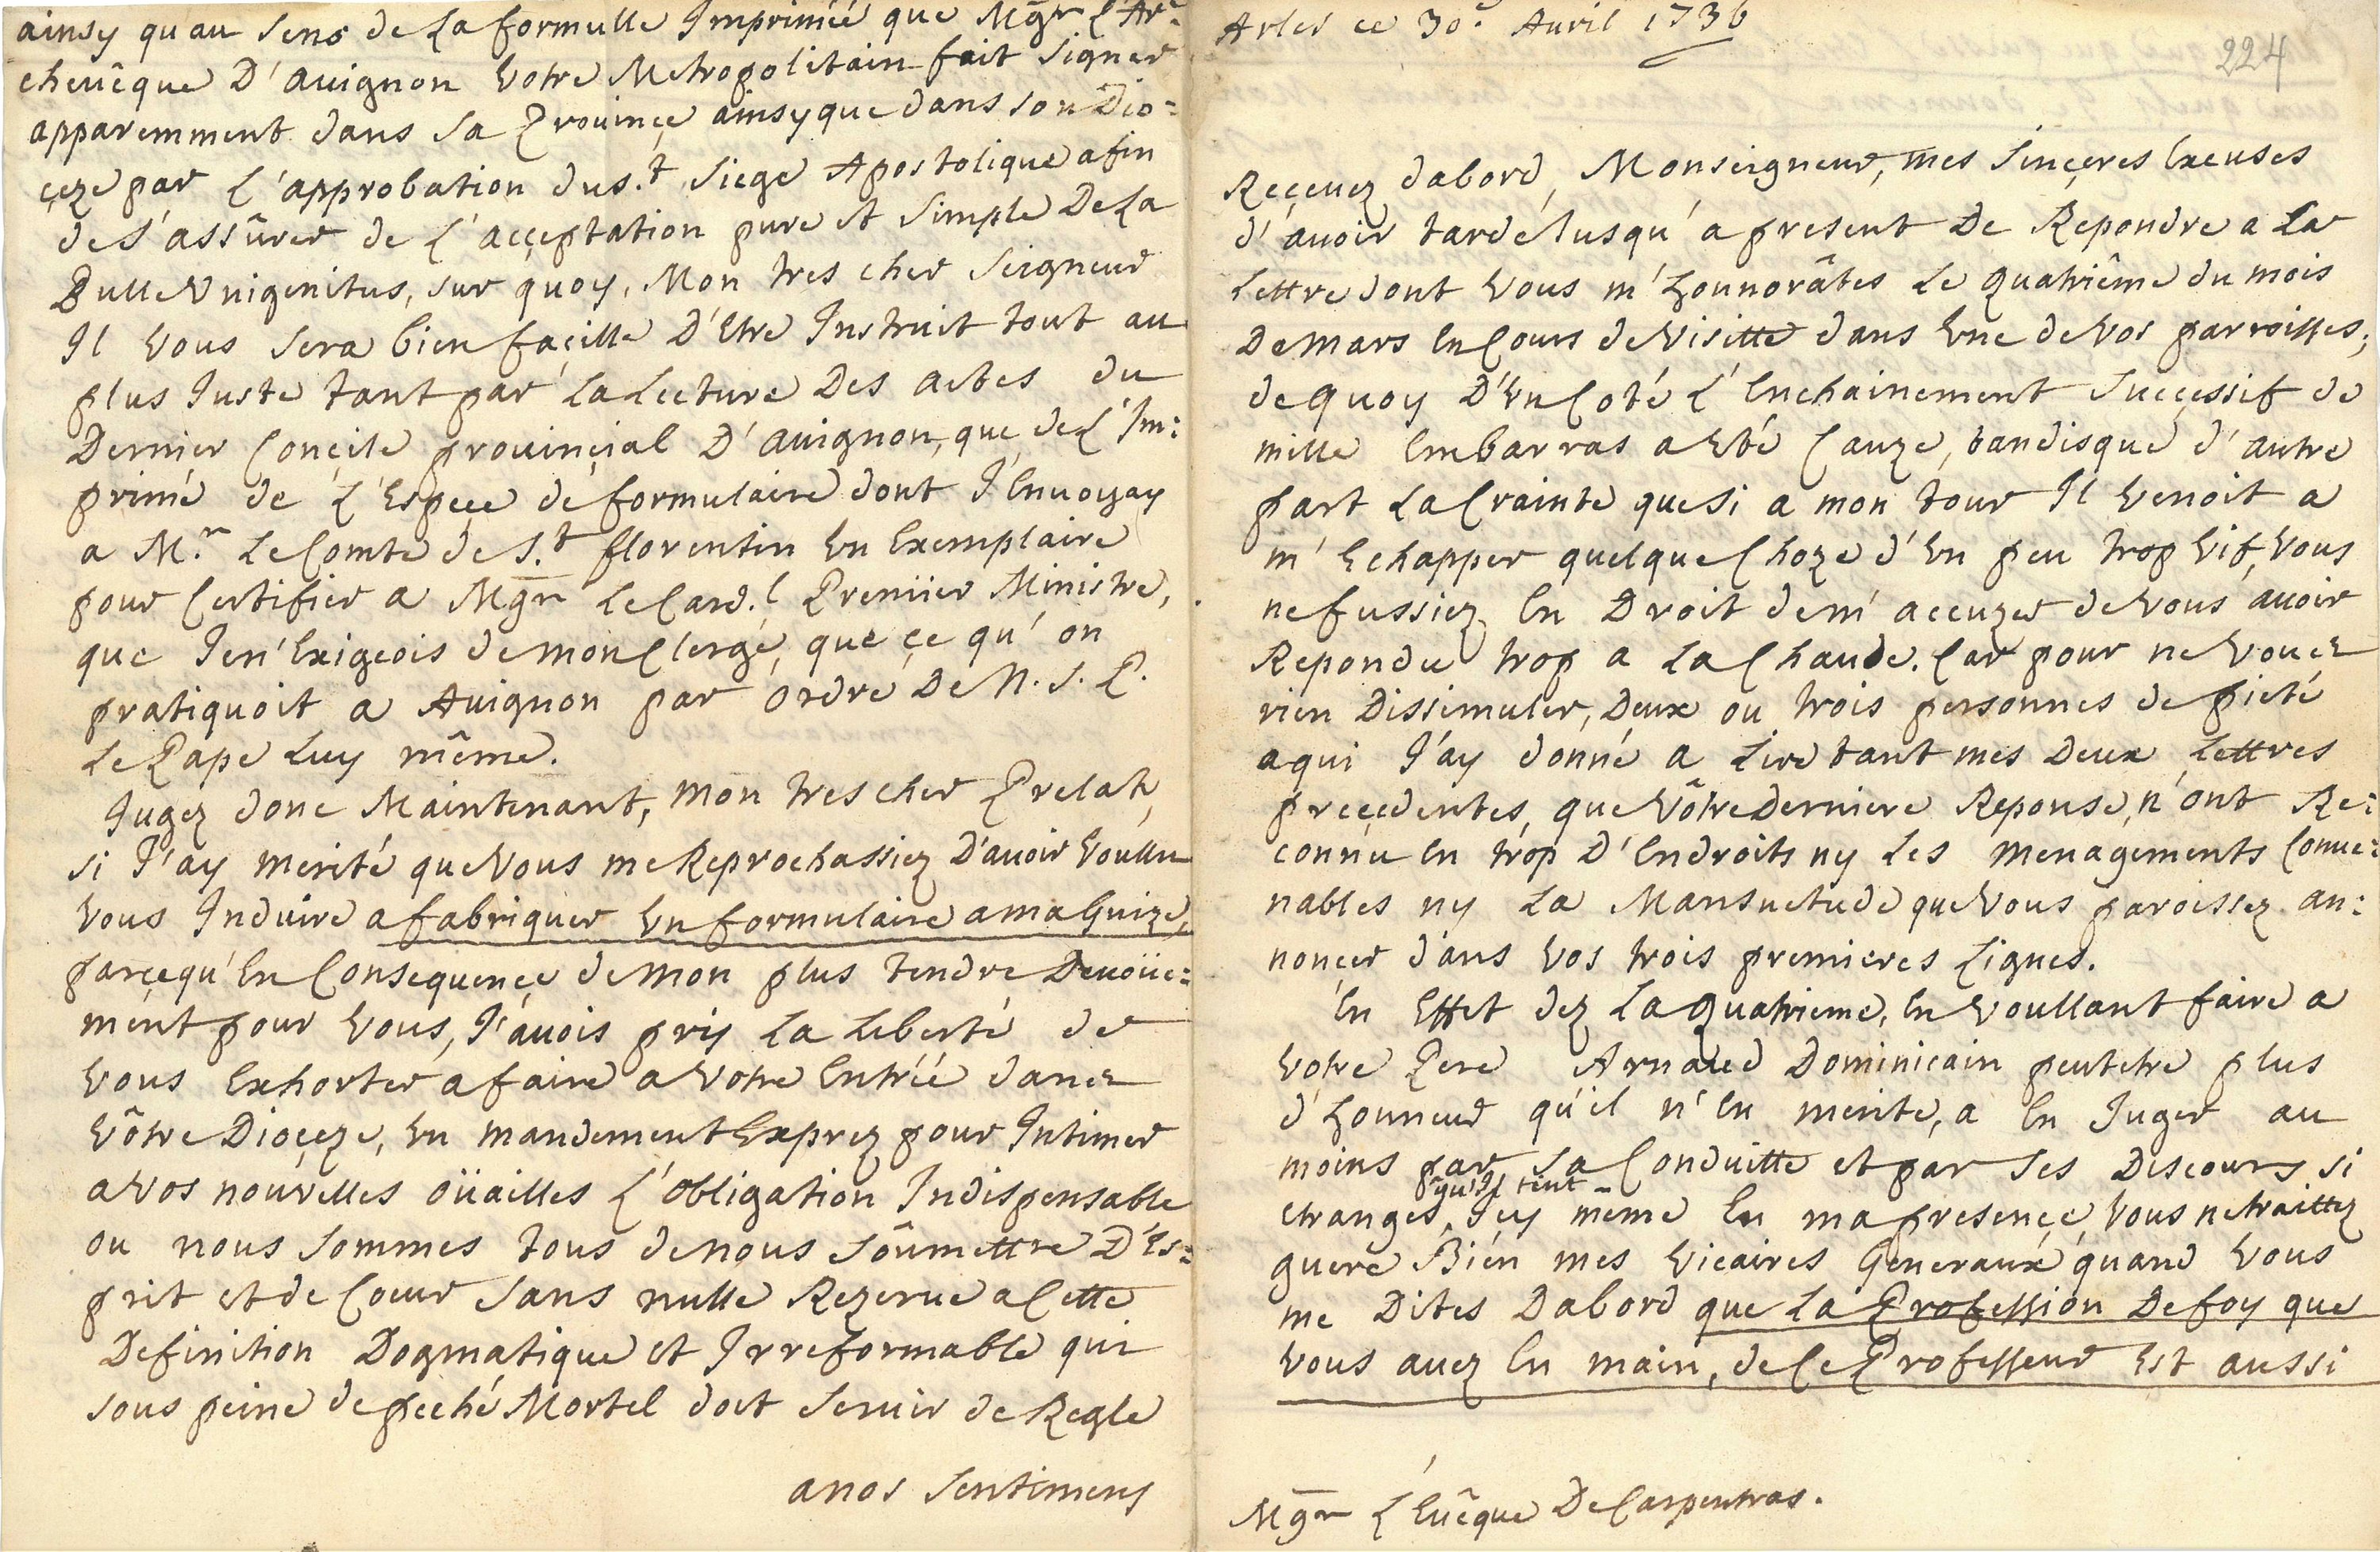 ainsy qu'au sens de La formulle Imprimée que Mgr L'Ar=
chevêque D'auignon Votre Metropolitain fait signer
apparemment dans sa Prouinçe ainsy que dans son Dio=
çeze par L'approbation du s.t siege Apostolique afin
de s'assûrer de L'acçeptation pure et simple De La
Bulle Vnigenitus, sur quoy, Mon tres cher seigneur
Il Vous sera bien façille D'Etre Instruit tout au
plus Juste tant par La Lecture Des actes du
Dernier Conçile prouinçial D'auignon, que de L'Im:
primé de L'Espece de formulaire dont J'Enuoyay
a M.r Le Comte de S.t florentin Un Exemplaire
pour Certifier a Mgr Le Card.l Premiier Ministre,
que Je n'Exigeois de mon Clergé, que çe qu'on
pratiquoit a Auignon par ordre De N. S. P.
Le Pape Luy même.
Jugez donc Maintenant, mon tres cher Prelat,
si J'ay merité que Vous me Reprochassiez D'auoir Voullu
Vous Induire a fabriquer Vn formulaire a ma Guize,
parçequ'En Consequençe de mon plus tendre Deuoüe=
ment pour Vous, J'auois pris La Liberté de
Vous Exhorter a faire a Votre Entrée dans
Vôtre Dioçeze, Vn mandement Exprez pour Intimer
a Vos nouvelles oüailles L'obligation Indispensable
ou nous sommes tous de nous soûmettre D'Es=
prit et de Coeur sans nulle Rezerue a Cette
Definition Dogmatique et Irreformable qui
sous peine de peché Mortel doit seruir de Regle
a nos sentimens
Arles ce 30.e Auril 1736
224
Reçeuez dabord, Monseigneur, mes sinçeres Excuses
d'auoir tardé Jusqu'a present De Repondre a La
Lettre dont Vous m'honnorâtes Le quatriême du mois
De mars En Cours de Visitte dans Vne de Vos parroisses;
de quoy D'Vn Coté L'Enchainement Sucçessif de
mille Embarras a Eté Cauze, tandisque d'autre
part La Crainte que si a mon tour Il Venoit a
m'Echapper quelque Choze d'Vn peu trop Vif, Vous
ne fussiez En Droit de m'accuzer de Vous auoir
Repondu trop a La Chaude. Car pour ne Vous
rien Dissimuler, Deux ou trois personnes de pieté
a qui J'ay donné a Lire tant mes Deux Lettres
preçedentes, que Vôtre Derniere Reponse, n'ont Re:
connu En trop D'Endroits ny Les menagements Conue:
nables ny La Mansuetude que Vous paroissez an:
nonçer dans Vos trois premieres Lignes.
En Effet dez La quatrieme, En Voullant faire a
Votre Pere Arnaud Dominicain peutetre plus
d'honneur qu'il n'En merite, a En Juger au
moins par sa Conduitte et par ses Discours si
etranges, qu'Il tint Icy meme En ma presençe, Vous ne traittez
guere Bien mes Vicaires Generaux quand Vous
me Dites Dabord que La Profession De foy que
Vous auez En main, de Ce Professeur Est aussi
Mgr L'Euêque De Carpentras.